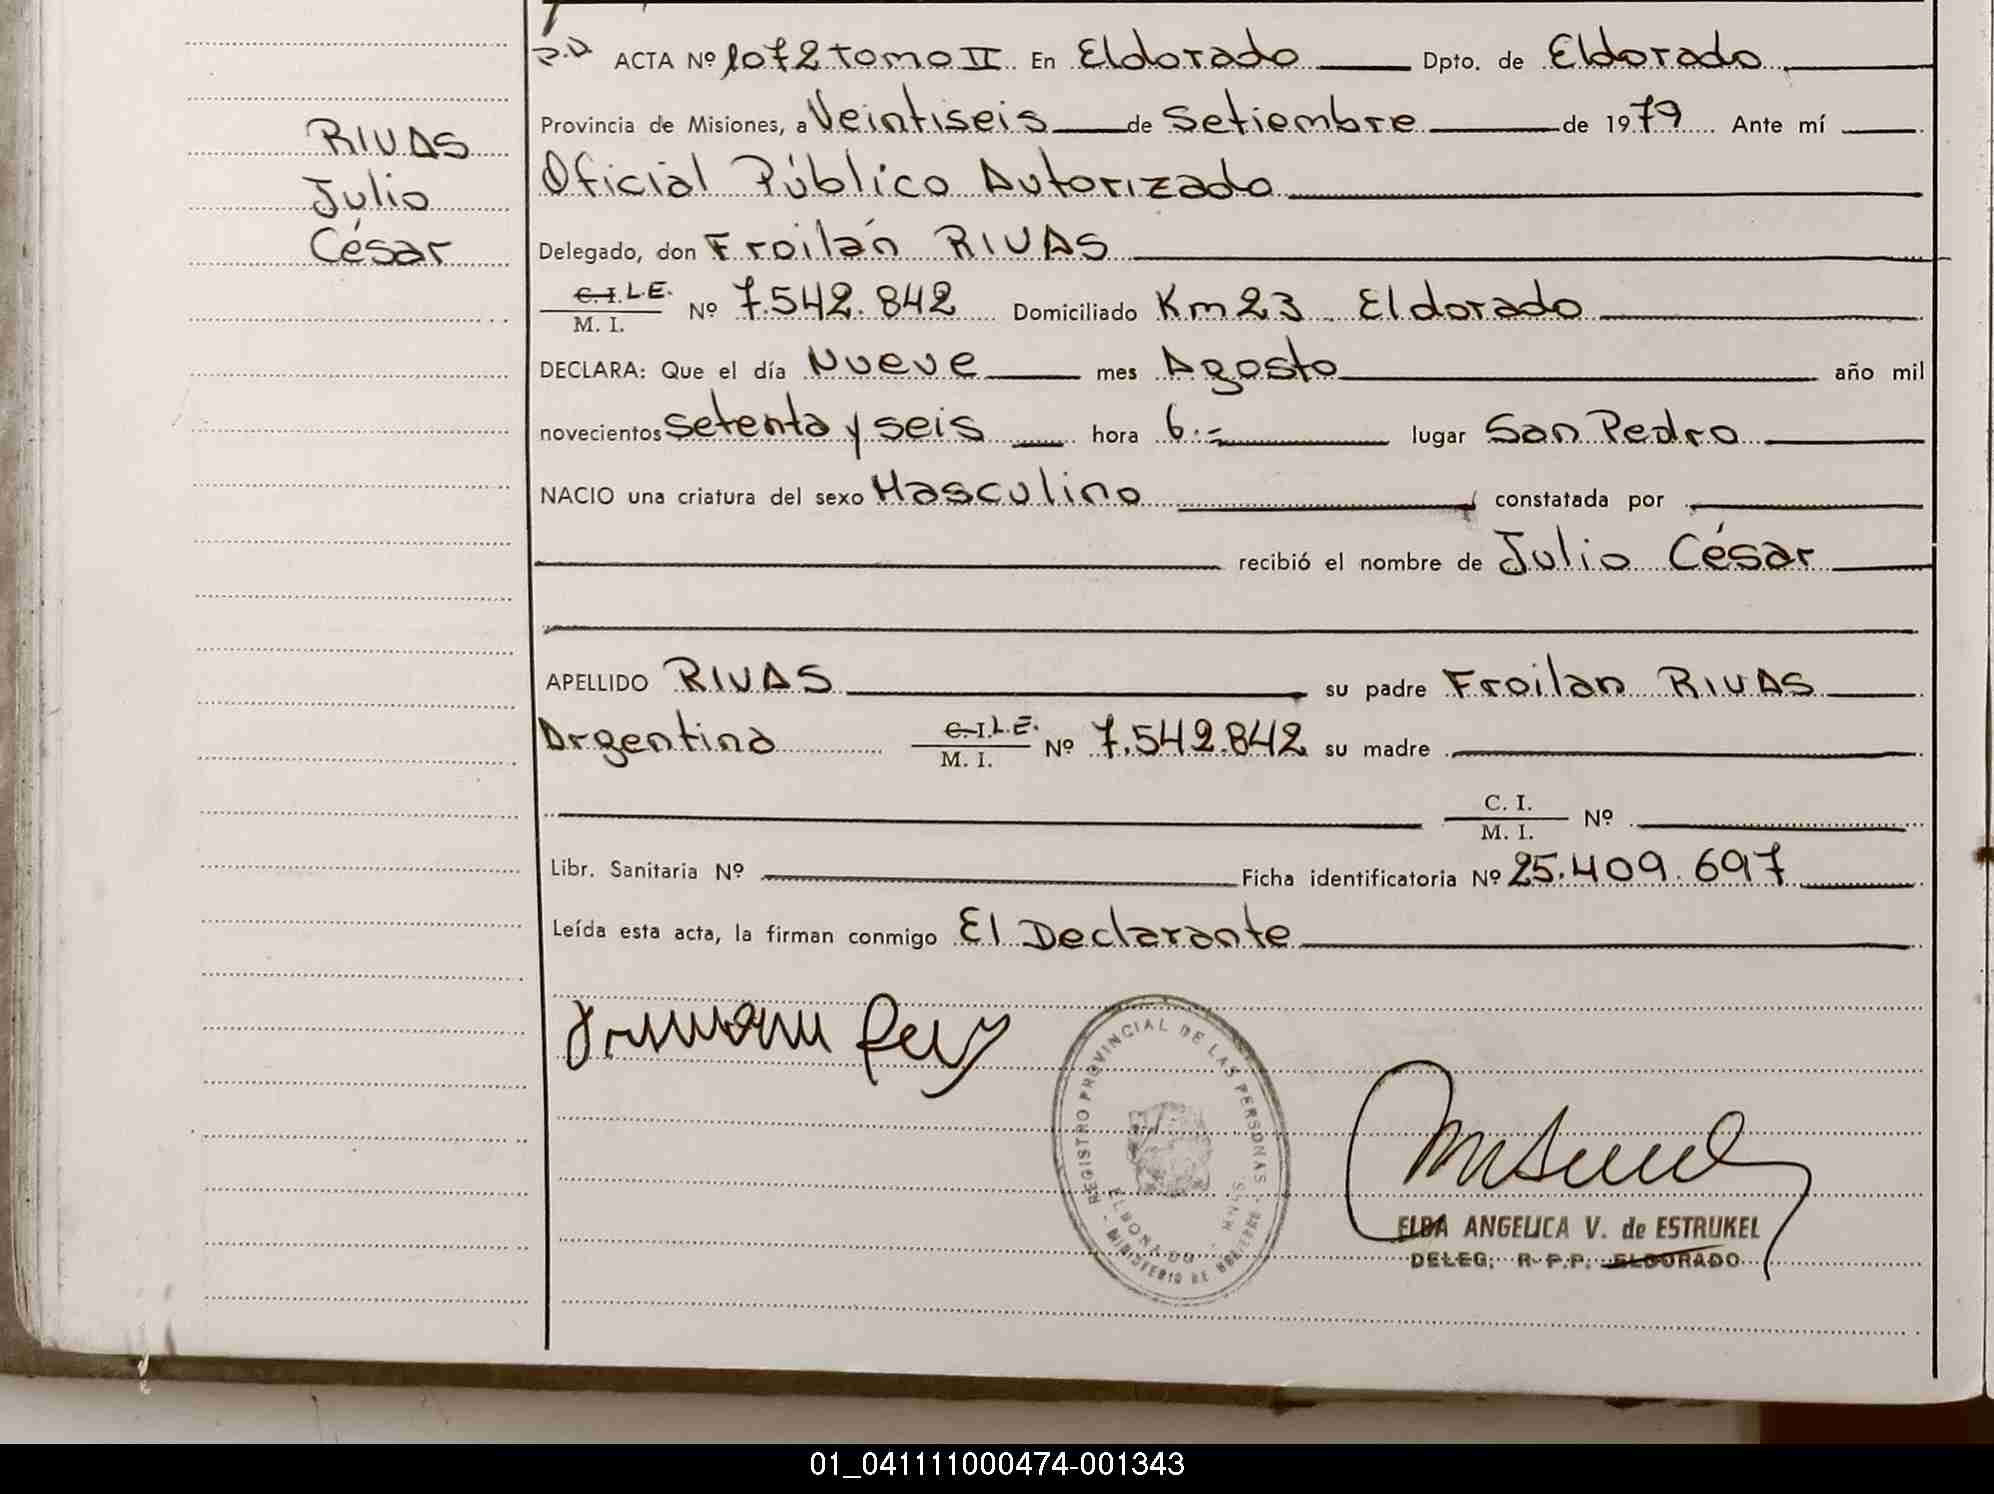 RIVAS
Julio
César
ACTA Nº 1072 tomo II En Eldorado Dpto. de Eldorado
Provincia de Misiones, a Veintiseis de Setiembre de 1979 Ante mí
Oficial Público Autorizado
Delegado, don Froilán RIVAS
C. I. L.E.
M. I. Nº 7.542.842 Domiciliado Km 23 Eldorado
DECLARA: Que el día Nueve mes Agosto año mil
novecientos setenta y seis hora 6.= lugar San Pedro
NACIO una criatura del sexo Masculino constatada por
recibió el nombre de Julio César
APELLIDO RIVAS su padre Froilan RIVAS
Argentino C.I. L.E.
M. I. Nº 7.542.842 su madre
C. I.
M. I. Nº
Libr. Sanitaria Nº Ficha identificatoria Nº 25.409.697
Leída esta acta, la firman conmigo El Declarante
REGISTRO PROVINCIAL DE LAS PERSONAS
ELDORADO - MNES
MINISTERIO DE GOBIERNO
ELBA ANGELICA V. de ESTRUKEL
DELEG. R.P.P. ELDORADO
01_041111000474-001343